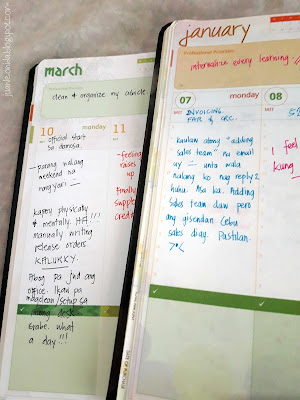 march
clean & organize my cubicle
10
monday
11
official start
sa damosa.
parang walang
weekend na
nangyari
kapoy physically
& mentally. HA!!!
manually writing
release orders.
KALUKKY.
pa jud ang
office. Ikaw pa
magclean/setup sa
imong desk.
Grabe. what
a day!!!
-feeling
rases
up
finally
supple
credit
january
Professional Priorities
internalize every learning
07
monday
08
INVOICING
FAR & GCC.
kaulaw atong "adding
sales team" na email
uy — unta wala
nalang ko nag reply 2
huhu. Asa ka. Adding
sales team daw pero
ang gisendan Cebu
sales diay. Pastilan.
>"<
I feel
kung